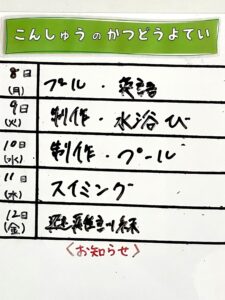 こんしゅうのかつどうよてい
8日(月) プール・英語
9日(火) 制作・水浴び
10日(水) 制作・プール
11日(木) スイミング
12日(金) 避難訓練
〈お知らせ〉